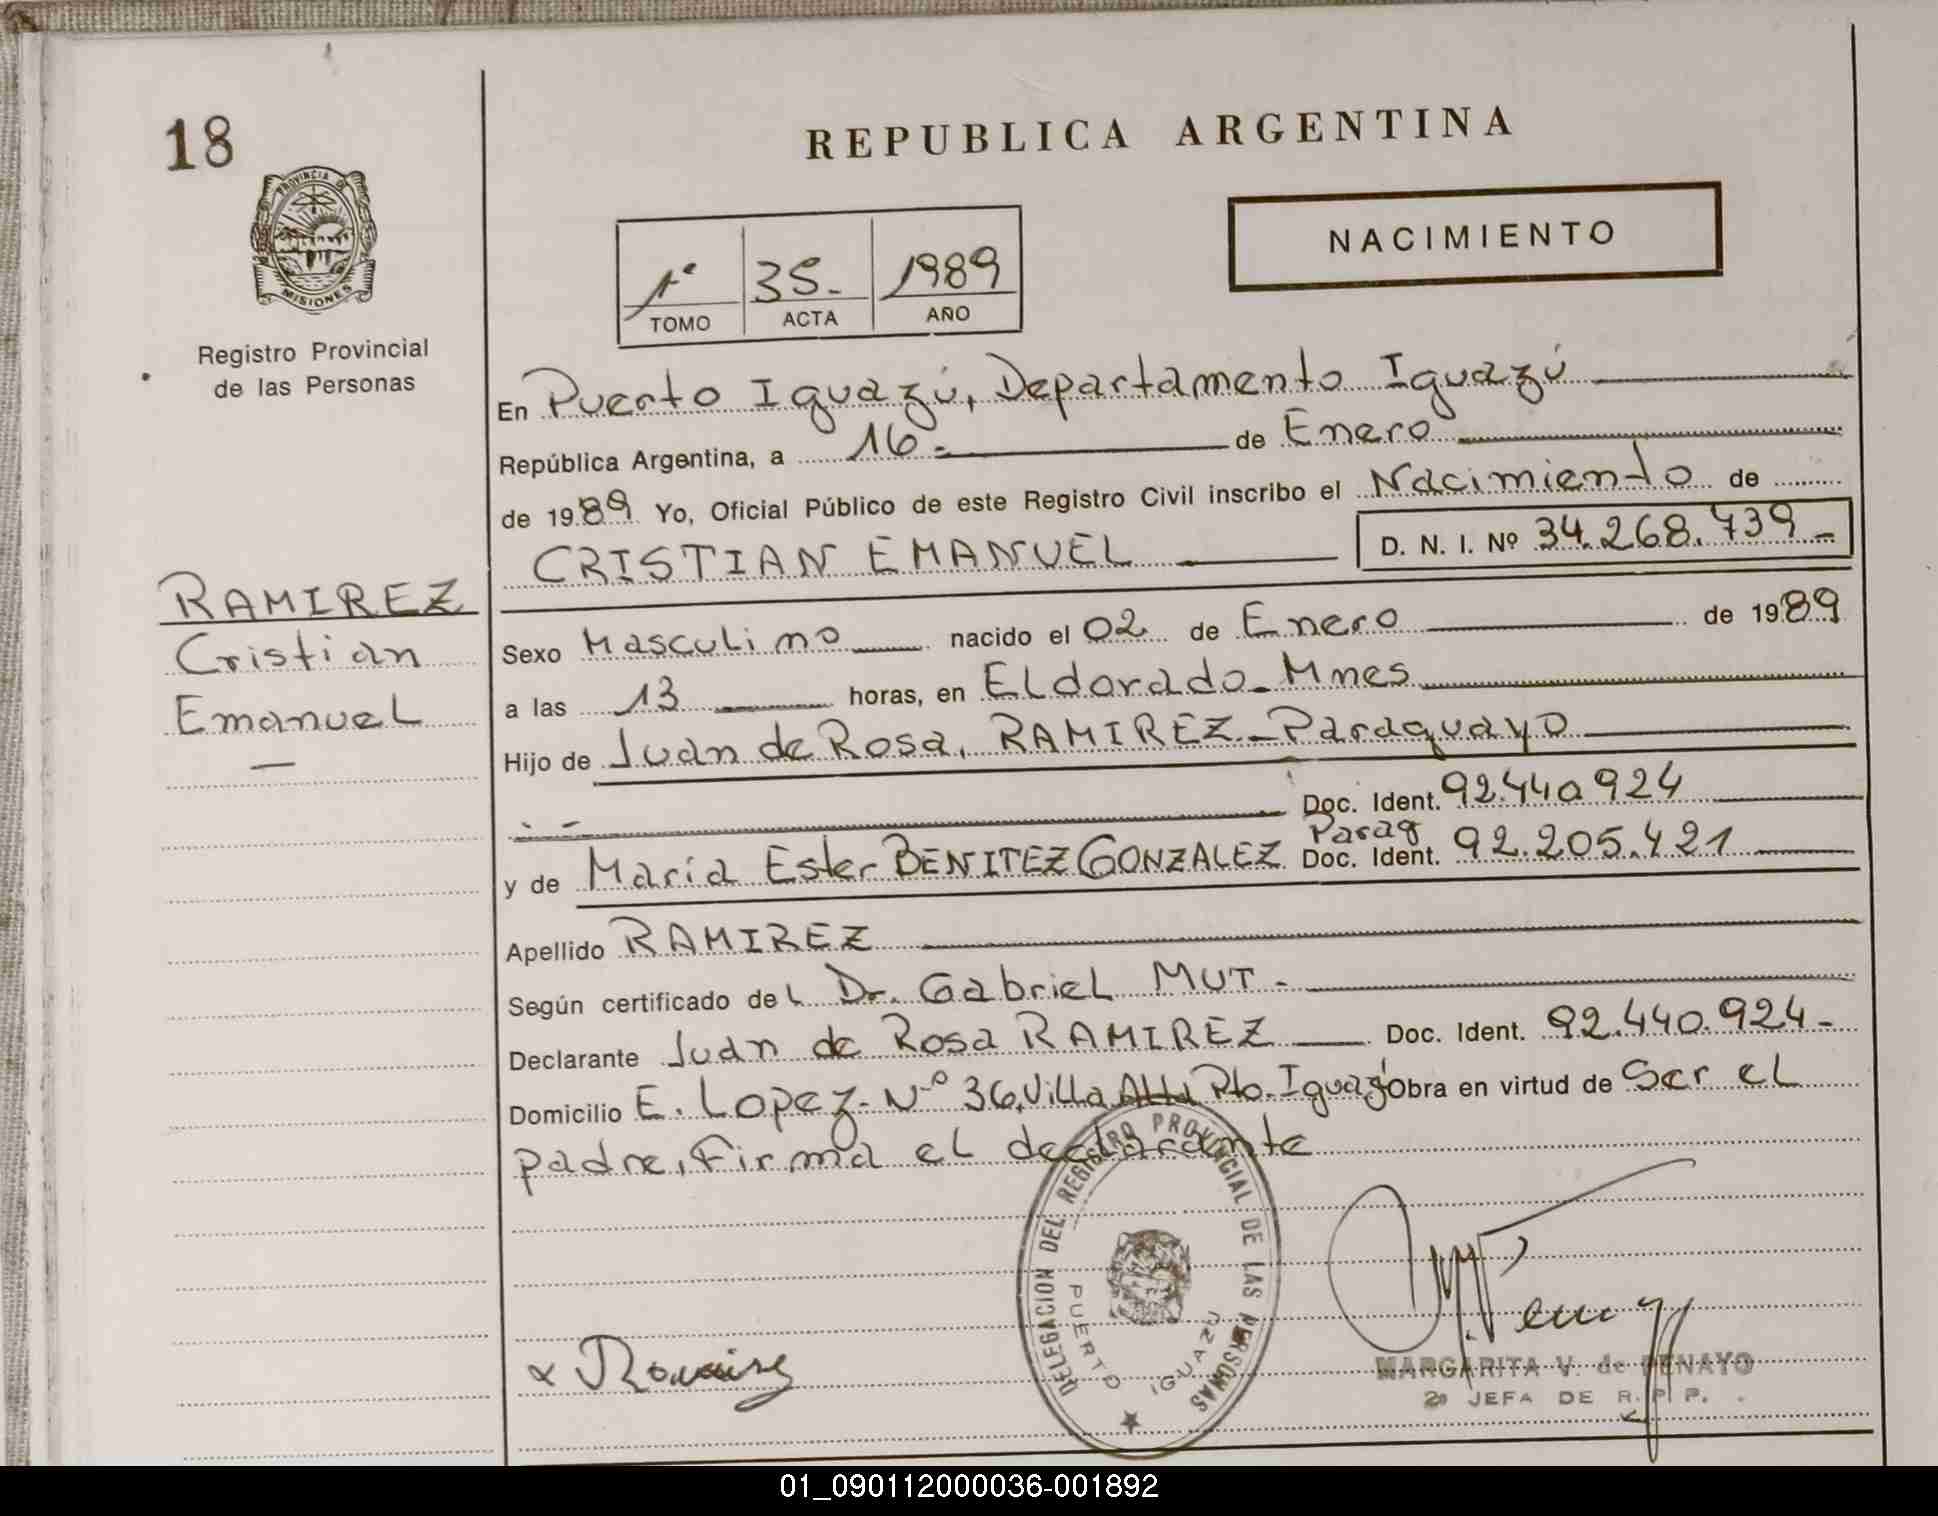 18
REPUBLICA ARGENTINA
PROVINCIA DE
MISIONES
NACIMIENTO
1° 35- 1989
TOMO ACTA AÑO
Registro Provincial
de las Personas
En Puerto Iguazú, Departamento Iguazú
República Argentina, a 16- de Enero
de 1989 Yo, Oficial Público de este Registro Civil inscribo el Nacimiento de
CRISTIAN EMANUEL D. N. I. Nº 34.268.739-
RAMIREZ
Cristian
Emanuel
Sexo Masculino nacido el 02 de Enero de 1989
a las 13 horas, en Eldorado-Mnes
Hijo de Juan de Rosa, RAMIREZ-Paraguayo
Doc. Ident. 92.440924
Parag
y de María Ester BENITEZ GONZALEZ Doc. Ident. 92.205.421
Apellido RAMIREZ
Según certificado del Dr. Gabriel MUT-
Declarante Juan de Rosa RAMIREZ Doc. Ident. 92.440.924-
Domicilio E. Lopez-N° 36,Villa Alta Pto. Iguazú obra en virtud de Ser el
padre, Firma el declarante
DELEGACION DEL REGISTRO PROVINCIAL DE LAS PERSONAS
PUERTO IGUAZU
MARGARITA V. de PENAYO
2a JEFA DE R. P. P.
01_090112000036-001892